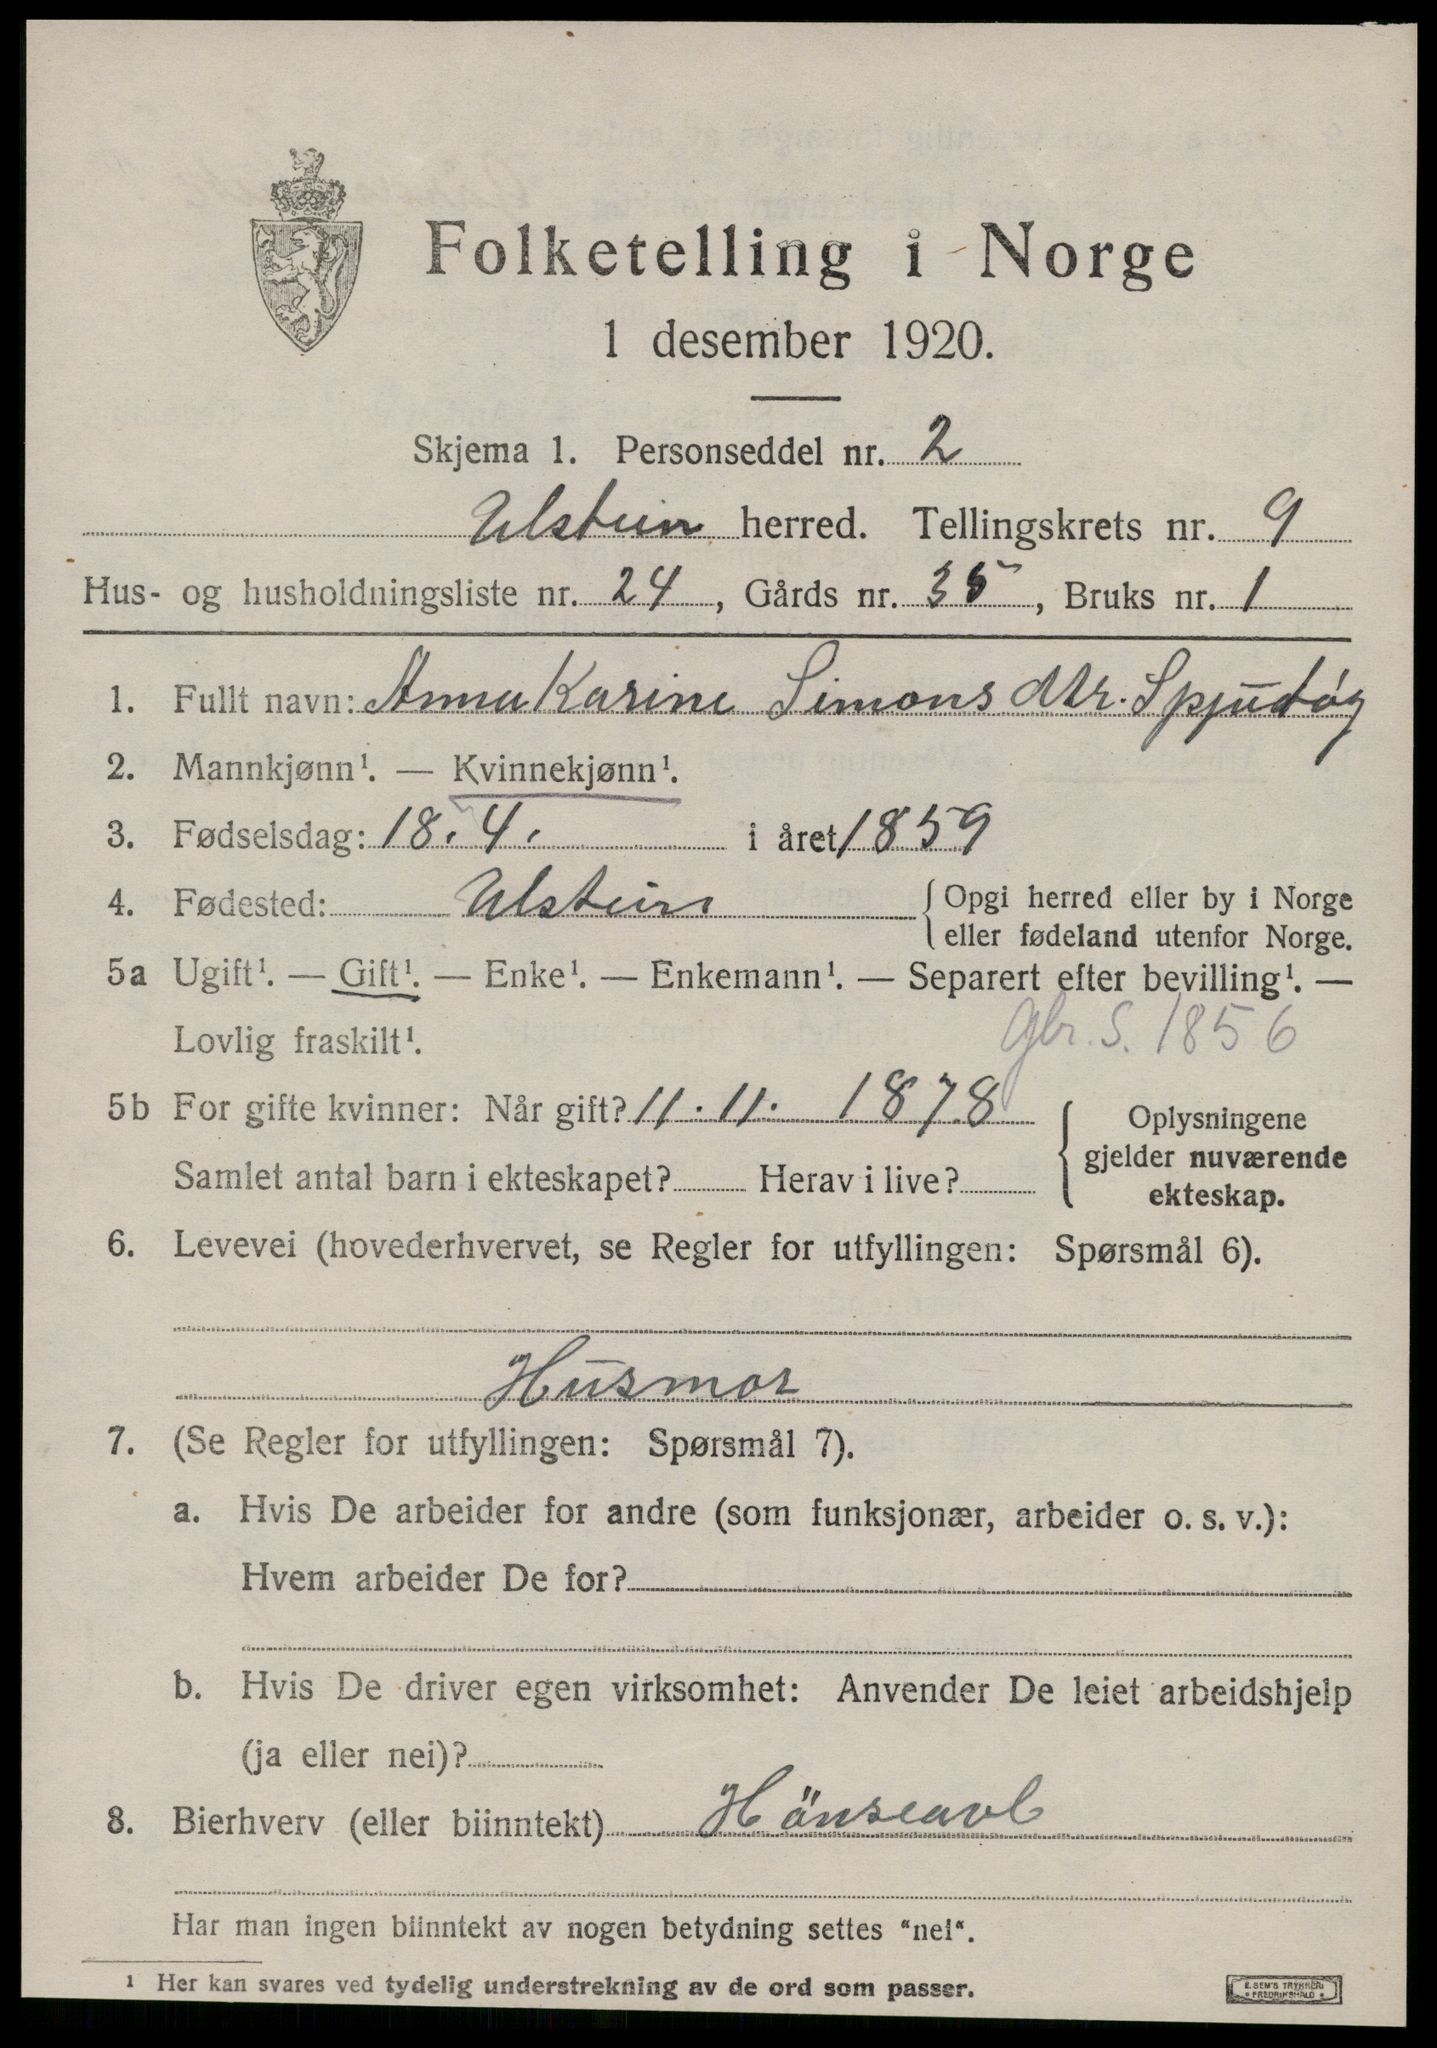 Folketelling i Norge
1 desember 1920.
Skjema 1. Personseddel nr. 2
Ulstein herred. Tellingskrets nr. 9
Hus- og husholdningsliste nr. 24, Gårds nr. 35, Bruks nr. 1
1. Fullt navn: Anna Karine Simonsdtr. Spjutøy
2. Mannkjønn¹. — Kvinnekjønn¹.
3. Fødselsdag: 18. 4. i året 1859
4. Fødested: Ulstein { Opgi herred eller by i Norge
eller fødeland utenfor Norge.
5a Ugift¹. — Gift¹. — Enke¹. — Enkemann¹. — Separert efter bevilling¹. —
Lovlig fraskilt¹. gbr. S. 1856
5b For gifte kvinner: Når gift? 11. 11. 1878
Samlet antal barn i ekteskapet? Herav i live?
{ Oplysningene
gjelder nuværende
ekteskap.
6. Levevei (hovederhvervet, se Regler for utfyllingen: Spørsmål 6).
Husmor
7. (Se Regler for utfyllingen: Spørsmål 7).
a. Hvis De arbeider for andre (som funksjonær, arbeider o. s. v.):
Hvem arbeider De for?
b. Hvis De driver egen virksomhet: Anvender De leiet arbeidshjelp
(ja eller nei)?
8. Bierhverv (eller biinntekt) Hönseavl
Har man ingen biinntekt av nogen betydning settes "nei".
¹ Her kan svares ved tydelig understrekning av de ord som passer.
E. SEM'S TRYKKERI
FREDRIKSHALD